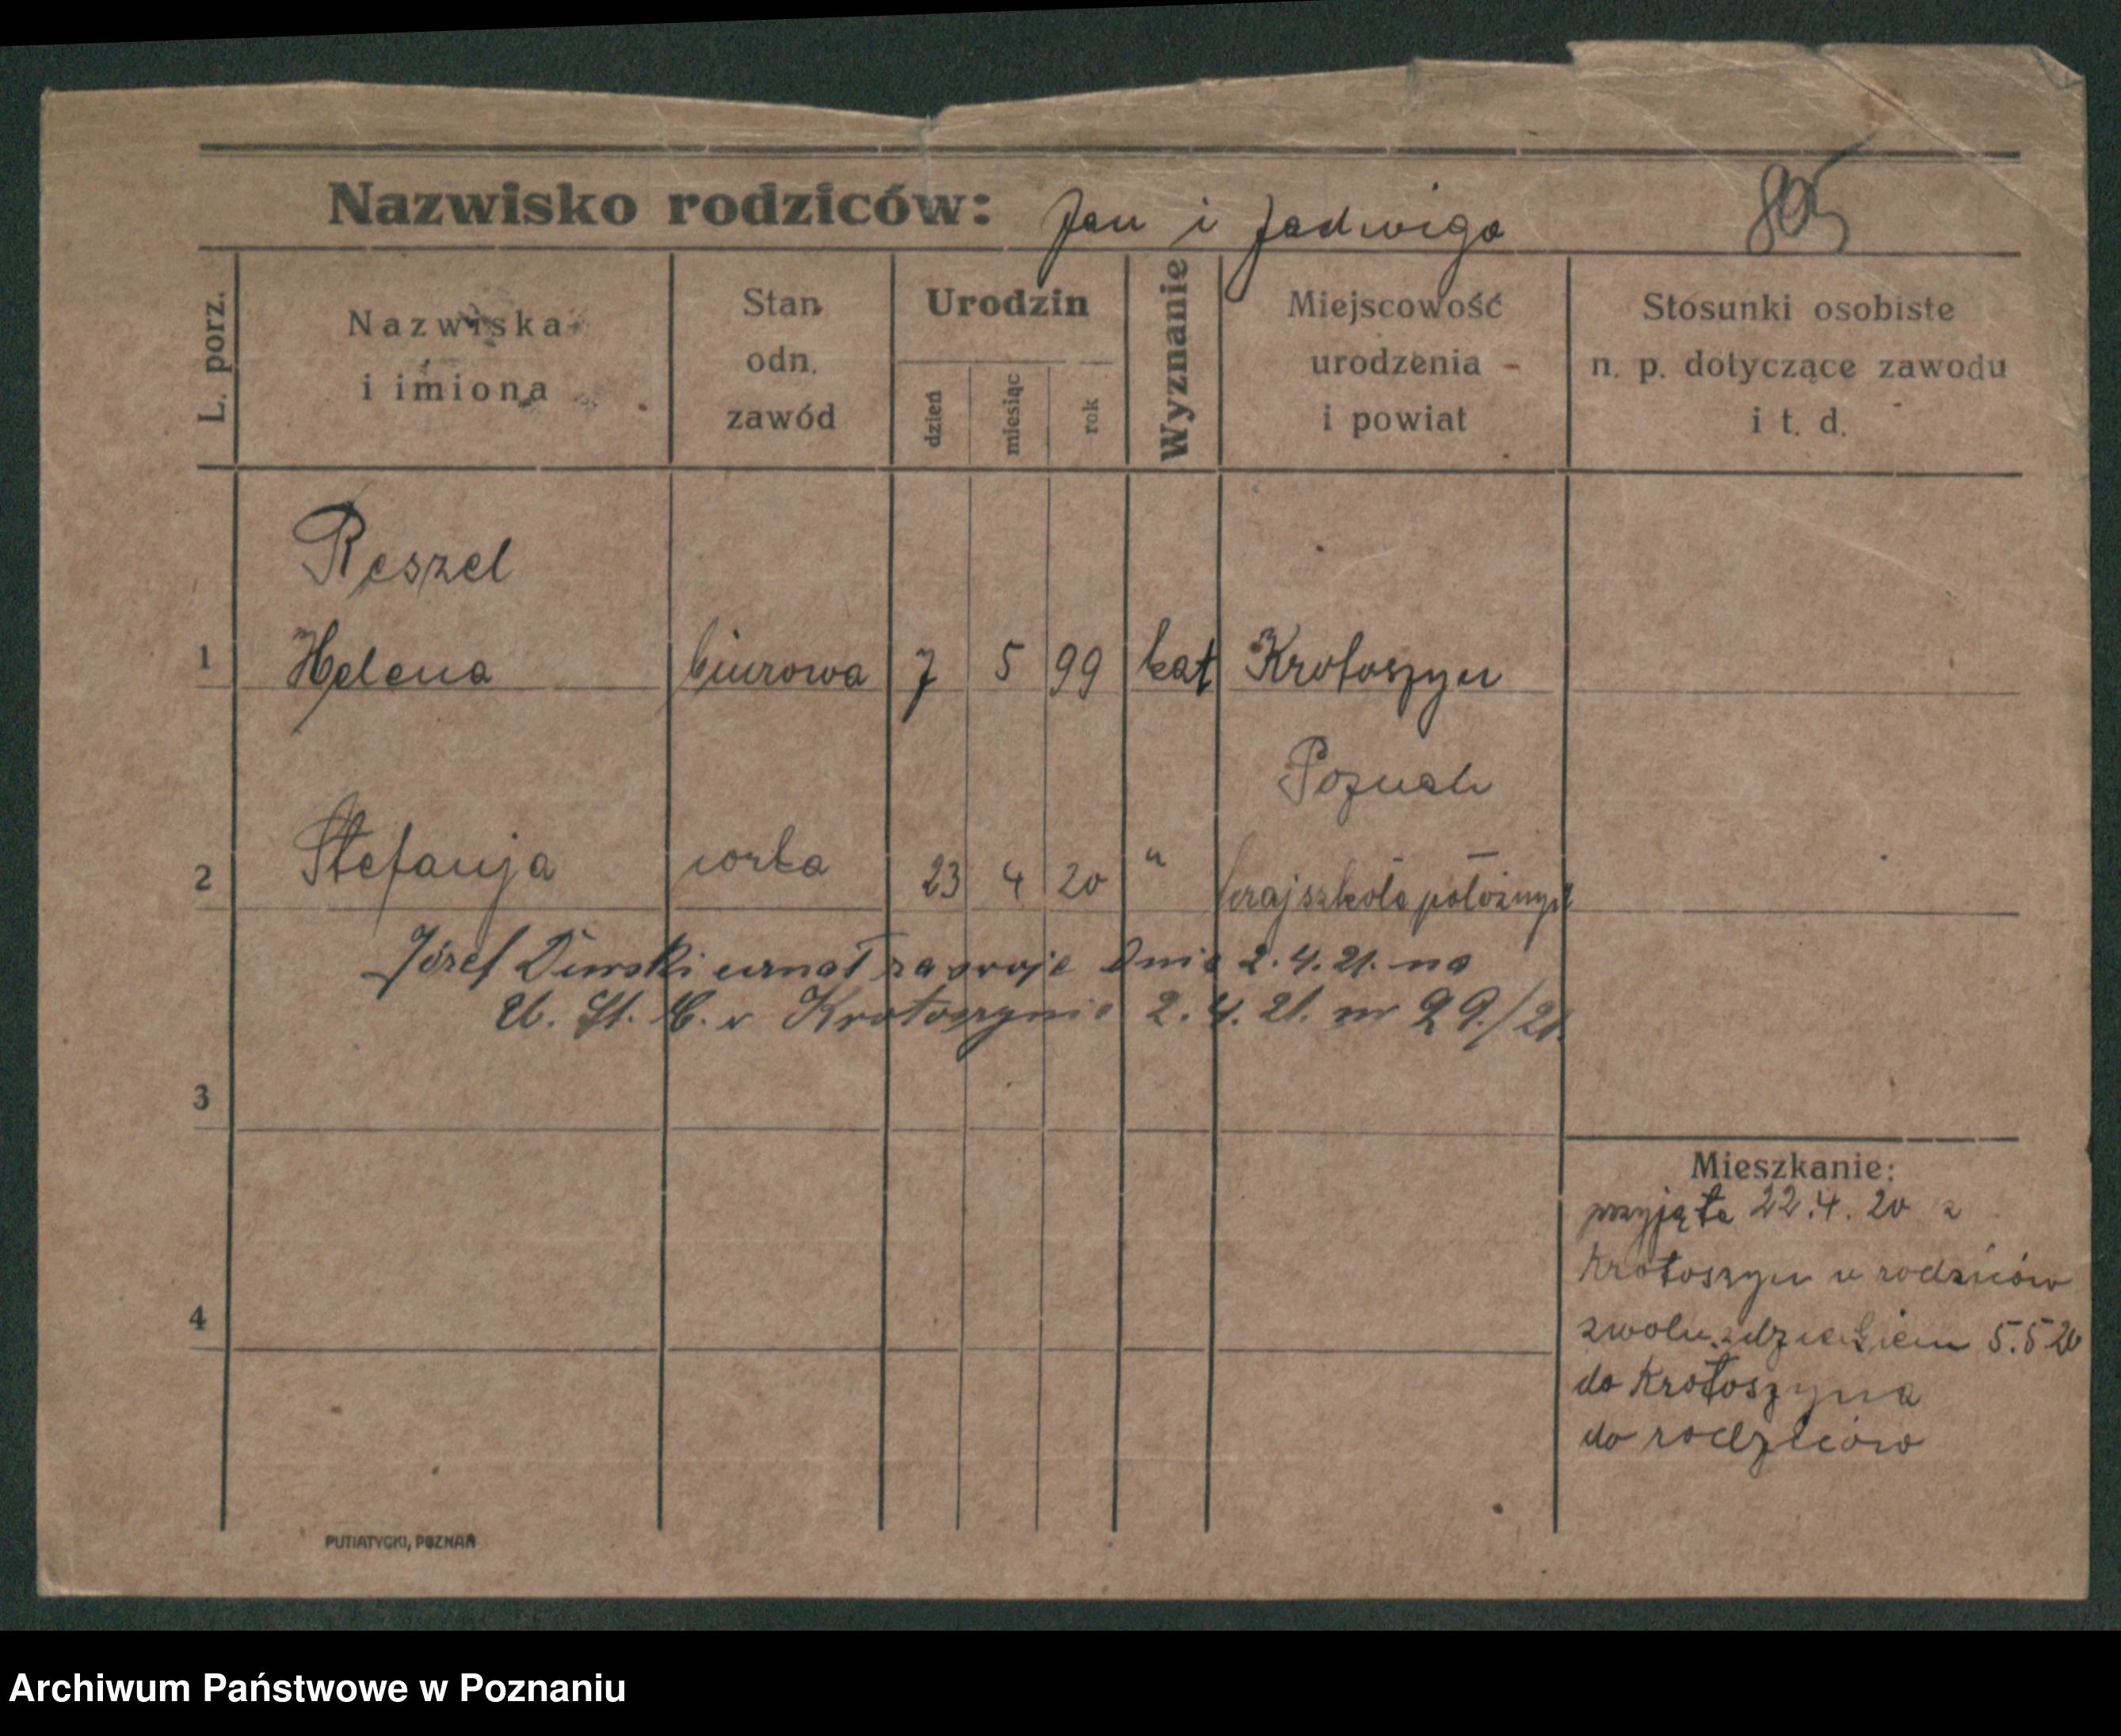 Nazwisko rodziców: Jan i Jadwiga 805
L. porz.
Nazwiska
i imiona
Stan
odn.
zawód
Urodzin
dzień
miesiąc
rok
Wyznanie
Miejscowość
urodzenia
i powiat
Stosunki osobiste
n. p. dotyczące zawodu
i t. d.
Reszel
1 Helena biurowa 7 5 99 kat Krotoszyn
Poznań
2 Stefanja corka 23 4 20 " kraj szkoła położnych
Józef uznał za swoje dnia 2.4.21. na
U. St. C. w Krotoszynie 2.4.21. nr 29./21.
3
4
Mieszkanie:
przyjęta 22.4.20 z
Krotoszyn u rodziców
zwoln. z dzieckiem 5.5 20
do Krotoszyna
do rodziców
PUTIATYCKI, POZNAŃ
Archiwum Państwowe w Poznaniu